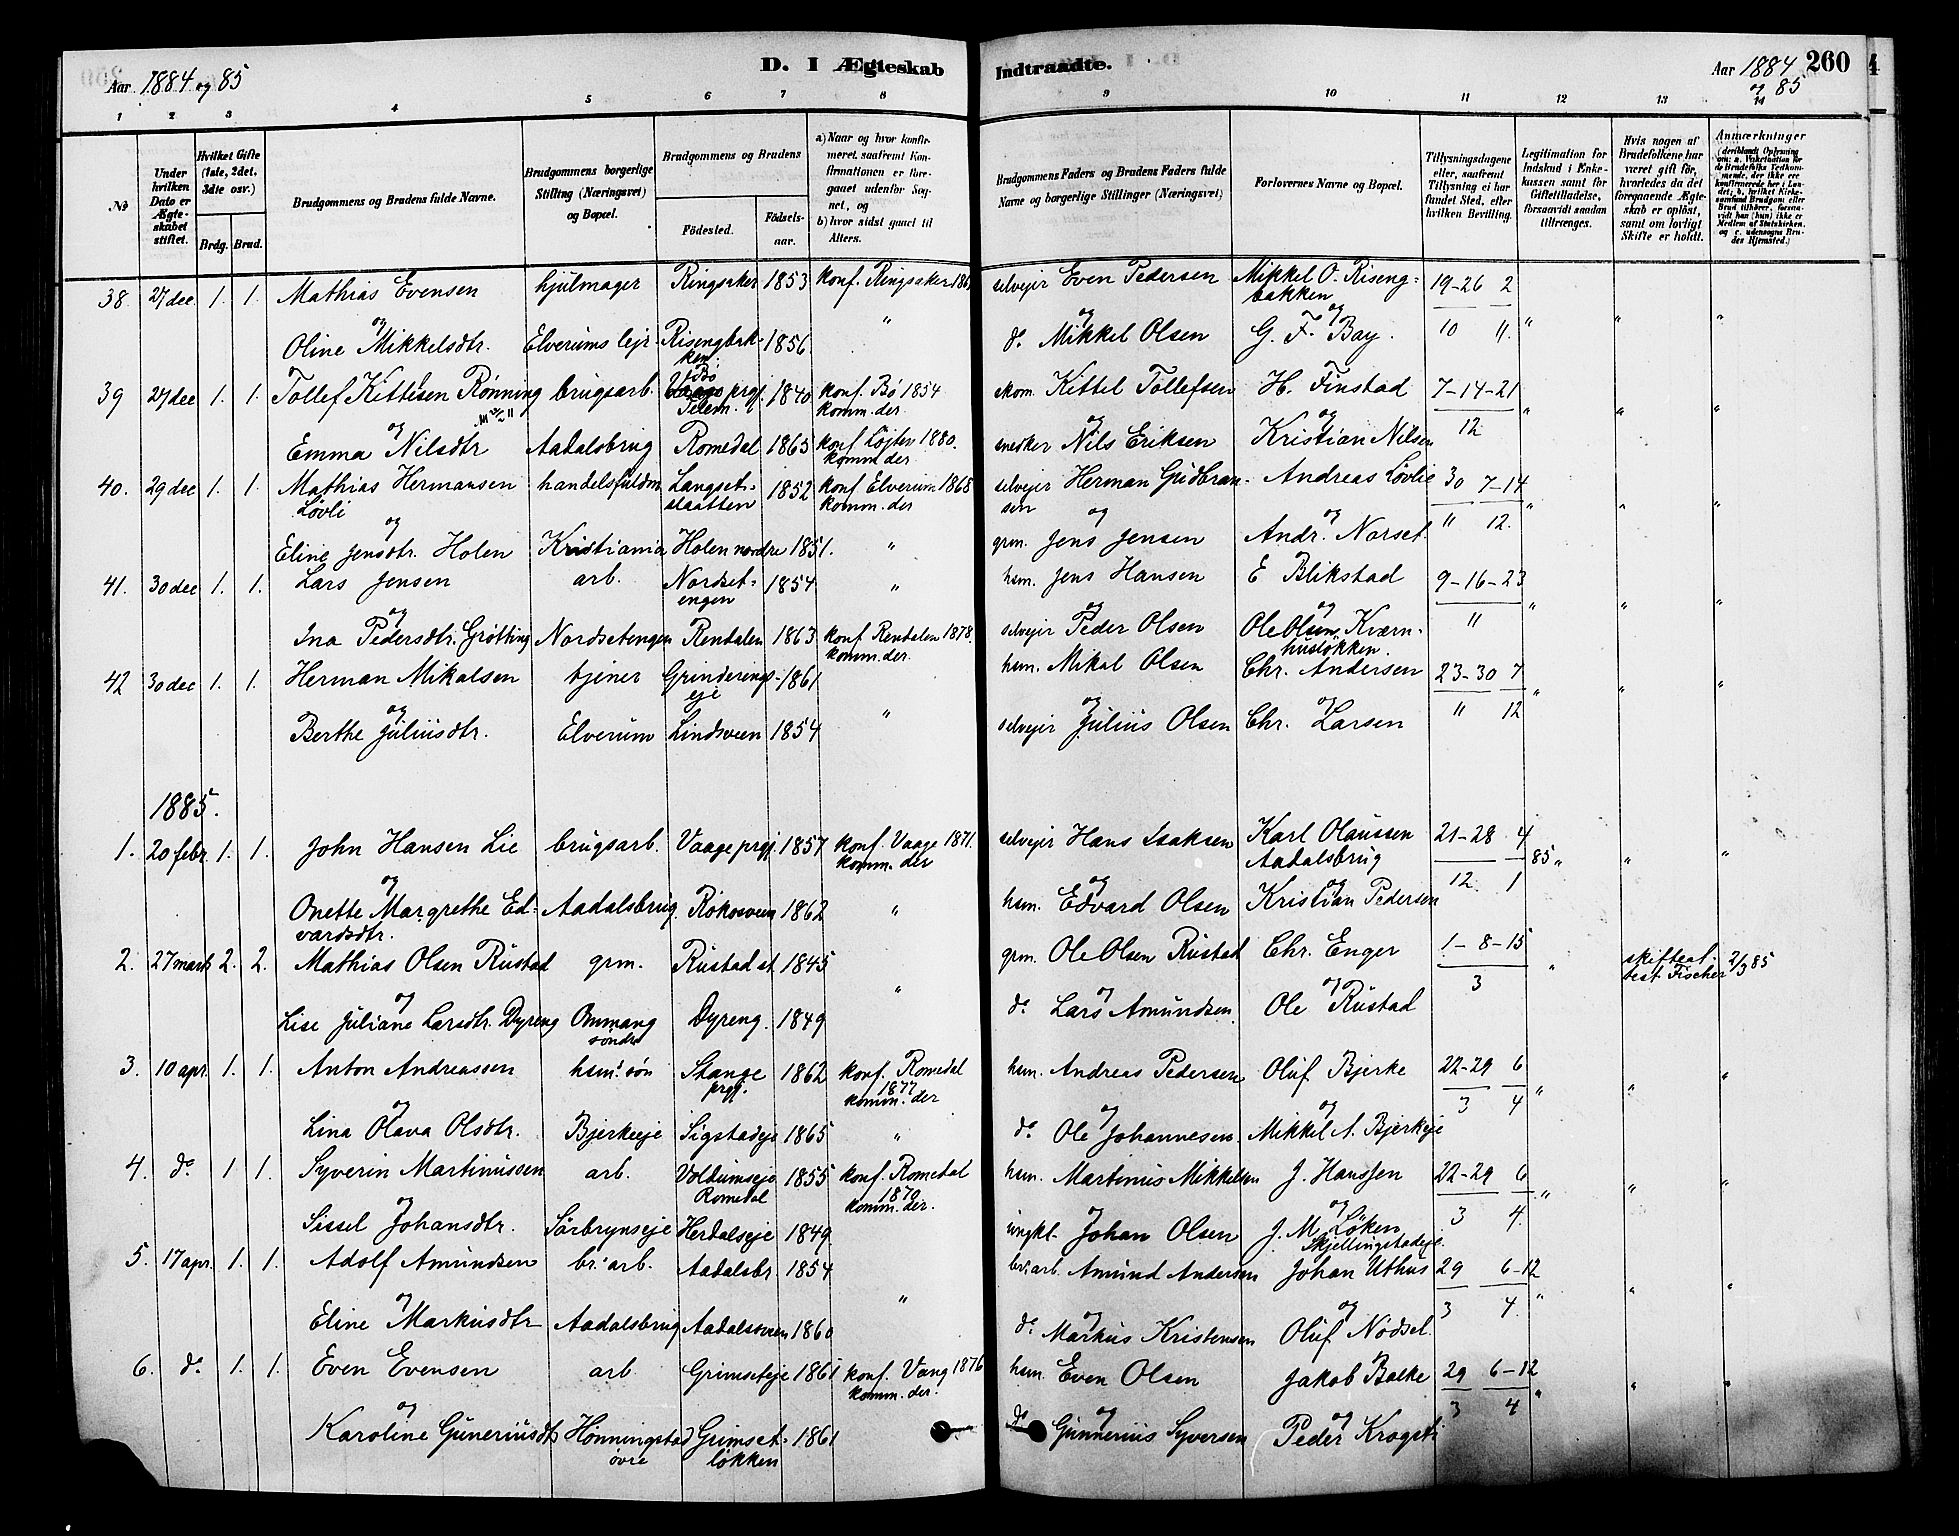 Aar 1884 og 85
D. I Ægteskab
Indtraadte.
Aar 1884 og 85
260
1 2 3 4 5 6 7 8 9 10 11 12 13 14
No
Under hvilken Dato er Ægteskabet stiftet.
Hvilket Gifte (1ste, 2det, 3die osv.)
Brdg. Brud.
Brudgommens og Brudens fulde Navne.
Brudgommens borgerlige Stilling (Næringsvei) og Bopæl.
Brudgommens og Brudens
Fødested.
Fødselsaar.
a) Naar og hvor konfirmeret, saafremt Konfirmationen er foregaaet udenfor Sognet, og
b) hvor sidst gaaet til Alters.
Brudgommens Faders og Brudens Faders fulde Navne og borgerlige Stillinger (Næringsvei)
Forlovernes Navne og Bopæl.
Tillysningsdagene eller, saafremt Tillysning ei har fundet Sted, efter hvilken Bevilling.
Legitimation for Indskud i Enkekassen samt for Giftetilladelse, forsaavidt saadan tiltrænges.
Hvis nogen af Brudefolkene har været gift før, hvorledes da det foregaaende Ægteskab er opløst, samt om lovligt Skifte er holdt.
Anmærkninger
38. 27 dec 1. 1. Mathias Evensen hjulmager Ringsaker 1853 konf. Ringsaker selvejer Even Pedersen Mikkel O. Risengbakken 19-26 2
og " og og 10 11. " " "
Oline Mikkelsdtr. Elverums lejr Risengbakken 1856. do Mikkel Olsen G. F. Bay.
39 27 dec 1. 1. Tollef Kittilsen Rønning brugsarb. Bø prgj. Telem. 1840 konf. Bø 1854 komm. der. skom. Kittel Tollefsen H. Finstad 7-14-21
og og og 12 " " "
Emma Nilsdtr Aadalsbrug Romedal 1863 konf Løjten 1880. komm der snedker Nils Eriksen Kristian Nilsen
40. 29 dec 1. 1. Mathias Hermansen Løvli handelsfuldm. Langsetslaatten 1852 konf Elverum 1868 komm. der selvejer Herman Gudbransen Andreas Løvlie 30 7-14
og og og 11 12. " " "
Eline Jensdtr. Holen Kristiania Holen nordre 1851. " grm. Jens Jensen Andr. Norset
41. 30 dec 1. 1. Lars Jensen arb. Nordsetengen 1854 " hsm. Jens Hansen E Blikstad 9-16-23
og og og 11 " " "
Ina Pedersdtr. Grøtting Nordsetengen Rendalen 1863 konf Rendalen 1878. komm. der. selvejer Peder Olsen Ole Olsen Kværnhusløkken.
42 30 dec 1. 1. Herman Mikalsen tjener Grinderingseje 1861 hsm. Mikal Olsen Chr. Andersen 23-30 7
og " og og 11 12 " " "
Berthe Juliusdtr. Elverum Lindsveen 1854 selvejer Julius Olsen Chr. Larsen
1885.
1. 20 febr 1. 1. John Hansen Lie brugsarb. Vaage prgj. 1857 konf. Vaage 1871. komm. der selvejer Hans Isaksen Karl Olaussen Aadalsbrug 21-28 4
og og og 12. 1 85 " " "
Onette Margrethe Edvardsdtr. Aadalsbrug Rokosveen 1862 " hsm. Edvard Olsen Kristian Pedersen
2. 27 marts 2. 2. Mathias Olsen Rustad grm. Rustad st. 1845 grm. Ole Olsen Rustad Chr. Enger 1-8-15
og " og og 3 " skifteattest Fischer 2/3 85
Lise Juliane Larsdtr. Dyreng Ommang søndre Dyreng. 1849 do Lars Amundsen. Ole Rustad
3. 10 apr. 1. 1. Anton Andreassen hsm. søn Stange prgj. 1862 konf. Romedal 1877 komm. der hsm. Andreas Pedersen Oluf Bjerke 22-29 6
og og og 3 4 " " "
Lina Olava Olsdtr. Bjerkeeje Sigstadeje 1865 " do Ole Johannesen. Mikkel A. Bjerkeje
4. do 1 1. Syverin Martinussen arb. Voldumseje Romedal 1855 konf. Romedal 1870 komm. der. hsm. Martinus Mikkelsen J. Hanssen 22-29 6
og og 3 4. " " "
Sissel Johansdtr. Sørbrynseje Herdalseje 1849. ungkl. Johan Olsen J. M. Løken Skjellingstadeje
5. 17 apr. 1. 1. Adolf Amundsen br. arb. Aadalsbr. 1854 br. arb. Amund Andersen Johan Uthus 29 6-12
og " og og 3 4. " " "
Eline Markusdtr Aadalsbrug Aadalsveen 1860 do Markus Kristensen Oluf Nodsel.
6. do 1. 1. Even Evensen arb. Grimseteje 1861 konf. Vang 1876 komm. der. hsm. Even Olsen Jakob Balke 29 6-12
og og og 3 4 " " "
Karoline Guneriusdtr Hønningstad øvre Grimsetløkken 1861 do Gunnerius Syversen Peder Krogsti